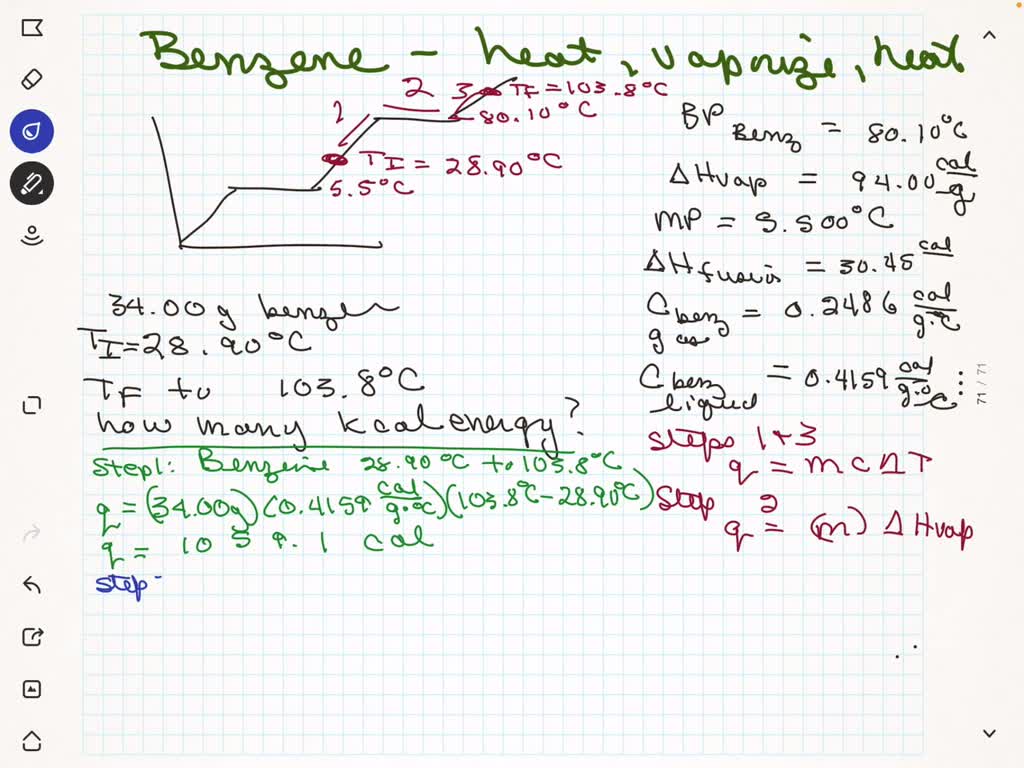 Benzene - heat, vaporize, heat
1
2
3
TF = 103.8°C
80.10°C
TI = 28.90°C
5.5°C
BP Benz = 80.10°C
ΔHvap = 94.00 cal/g
MP = 5.500°C
ΔHfusion = 30.45 cal
C benz gas = 0.2486 cal/g·°C
C benz liquid = 0.4159 cal/g·°C
34.00g benzen
TI = 28.90°C
TF to 103.8°C
how many kcal energy?
steps 1 + 3
q = m c ΔT
Step 2
q = (m) ΔHvap
Step 1: Benzene 28.90°C to 103.8°C
q = (34.00g)(0.4159 cal/g·°C)(103.8°C - 28.90°C)
q = 1059.1 cal
step
71 / 71